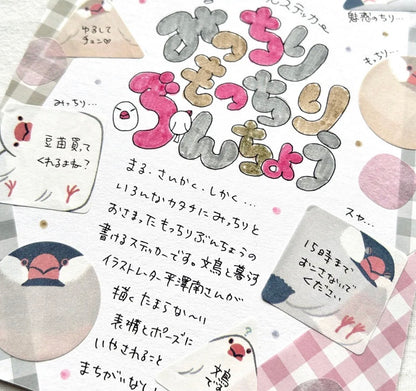 んステッカー
みっちり
もっちり
ぶんちょう
ゆるして
チュン♡
魅惑のちり…
もっちり…
みっちり…
豆苗買って
くれるよね？
まる・さんかく・しかく…
いろんなカタチにみっちりと
おさまったもっちりぶんちょうの
書けるステッカーです。文鳥と暮らす
イラストレーター平澤南さんが
描くたまらな〜い
表情とポーズに
いやされること
まちがいなし！
スヤ…
15時まで
おこさないで
ください
?
文鳥
です